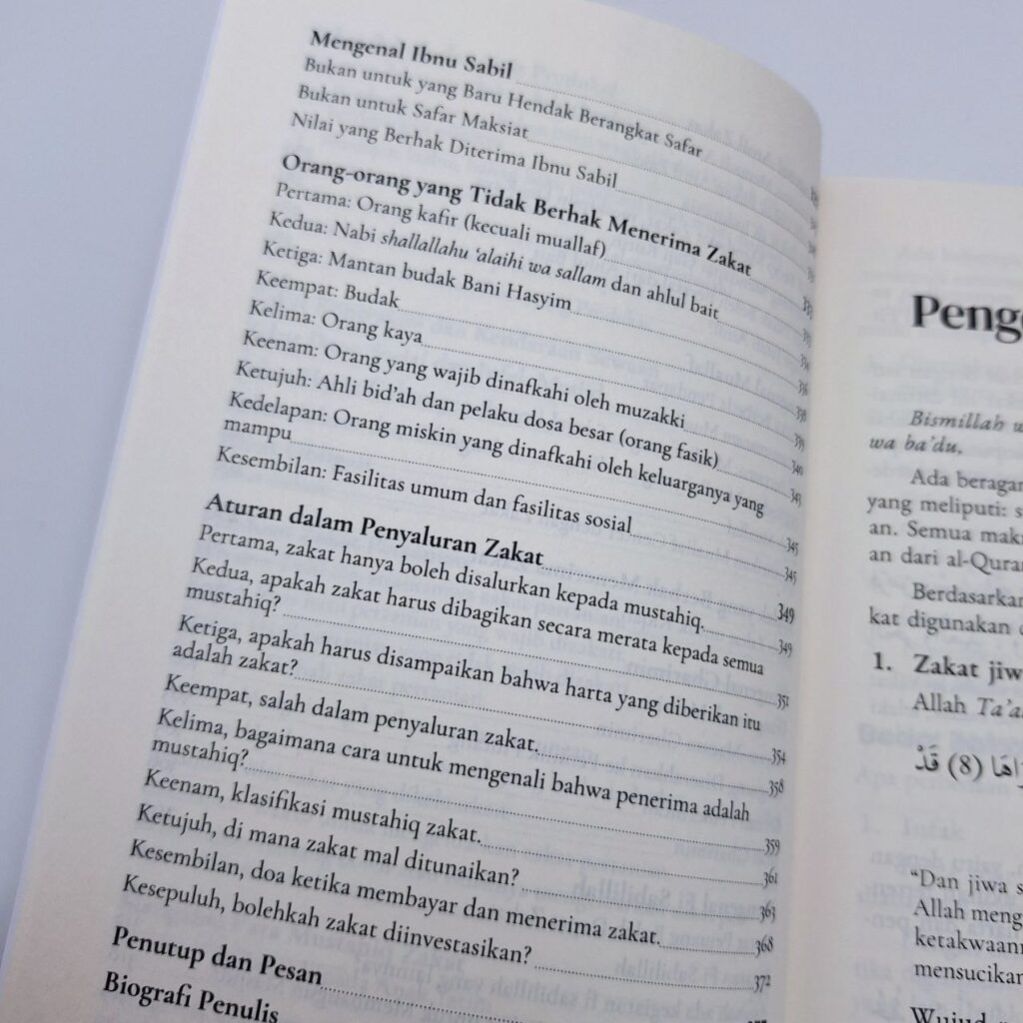 Mengenal Ibnu Sabil
Bukan untuk yang Baru Hendak Berangkat Safar
Bukan untuk Safar Maksiat
Nilai yang Berhak Diterima Ibnu Sabil
Orang-orang yang Tidak Berhak Menerima Zakat
Pertama: Orang kafir (kecuali muallaf)
Kedua: Nabi shallallahu ‘alaihi wa sallam dan ahlul bait
Ketiga: Mantan budak Bani Hasyim
Keempat: Budak
Kelima: Orang kaya
Keenam: Orang yang wajib dinafkahi oleh muzakki
Ketujuh: Ahli bid’ah dan pelaku dosa besar (orang fasik)
Kedelapan: Orang miskin yang dinafkahi oleh keluarganya yang
mampu 345
Kesembilan: Fasilitas umum dan fasilitas sosial 345
Aturan dalam Penyaluran Zakat 349
Pertama, zakat hanya boleh disalurkan kepada mustahiq. 349
Kedua, apakah zakat harus dibagikan secara merata kepada semua
mustahiq? 351
Ketiga, apakah harus disampaikan bahwa harta yang diberikan itu
adalah zakat? 354
Keempat, salah dalam penyaluran zakat. 358
Kelima, bagaimana cara untuk mengenali bahwa penerima adalah
mustahiq? 359
Keenam, klasifikasi mustahiq zakat. 361
Ketujuh, di mana zakat mal ditunaikan? 363
Kesembilan, doa ketika membayar dan menerima zakat. 368
Kesepuluh, bolehkah zakat diinvestasikan? 372
Penutup dan Pesan
Biografi Penulis
Penge
Bismillah w
wa ba’du.
Ada beragan
yang meliputi: s
an. Semua mak
an dari al-Qura
Berdasarkan
kat digunakan
1. Zakat jiw
Allah Ta’a
(8) قَدْ
“Dan jiwa s
Allah meng
ketakwaann
mensucikan
Wujud